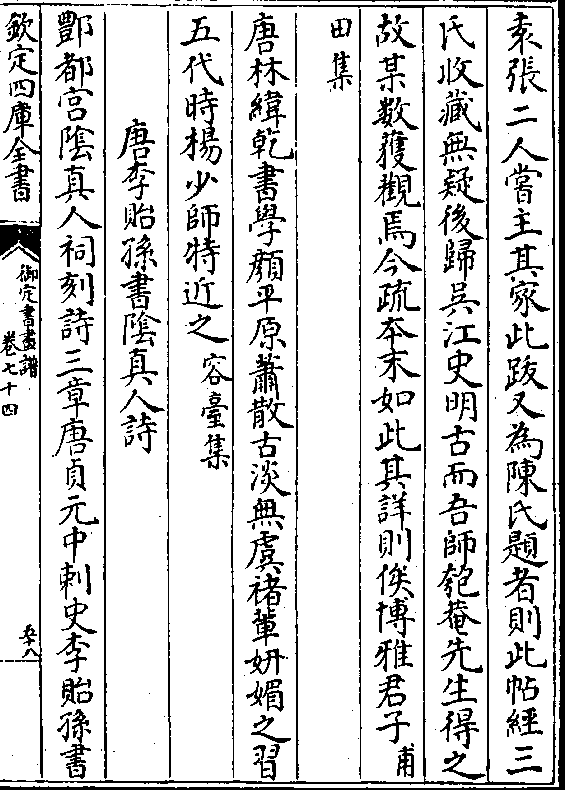 袁張二人嘗主其家此跋又為陳氏題者則此帖經三
氏收藏無疑後歸吳江史明古而吾師匏菴先生得之
故某數獲觀焉今疏本末如此其詳則俟博雅君子甫
田集
唐林緯乾書學顏平原蕭散古淡無虞褚輩妍媚之習
五代時楊少師特近之容臺集
唐李貽孫書陰真人詩
酆都宮陰真人祠刻詩三章唐貞元中刺史李貽孫書
欽定四庫全書
御定書畫譜
卷七十四